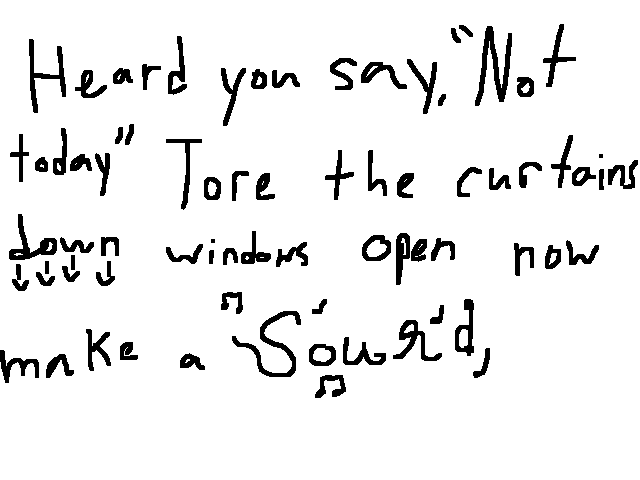 Heard you say, "Not
today" Tore the curtains
down windows open now
make a Sound,